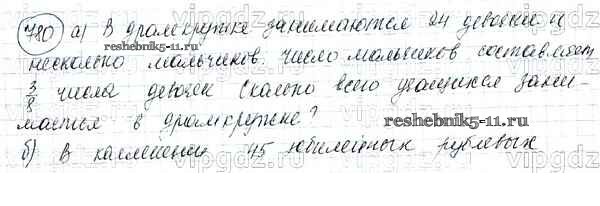 780 а) В драмкружке занимаются 24 девочки и
несколько мальчиков. Число мальчиков составляет
3/8 числа девочек Сколько всего учащихся зани-
мается в драмкружке?
б) В коллекции 45 юбилейных рублевых
reshebnik5-11.ru
reshebnik5-11.ru
vipgdz.ru